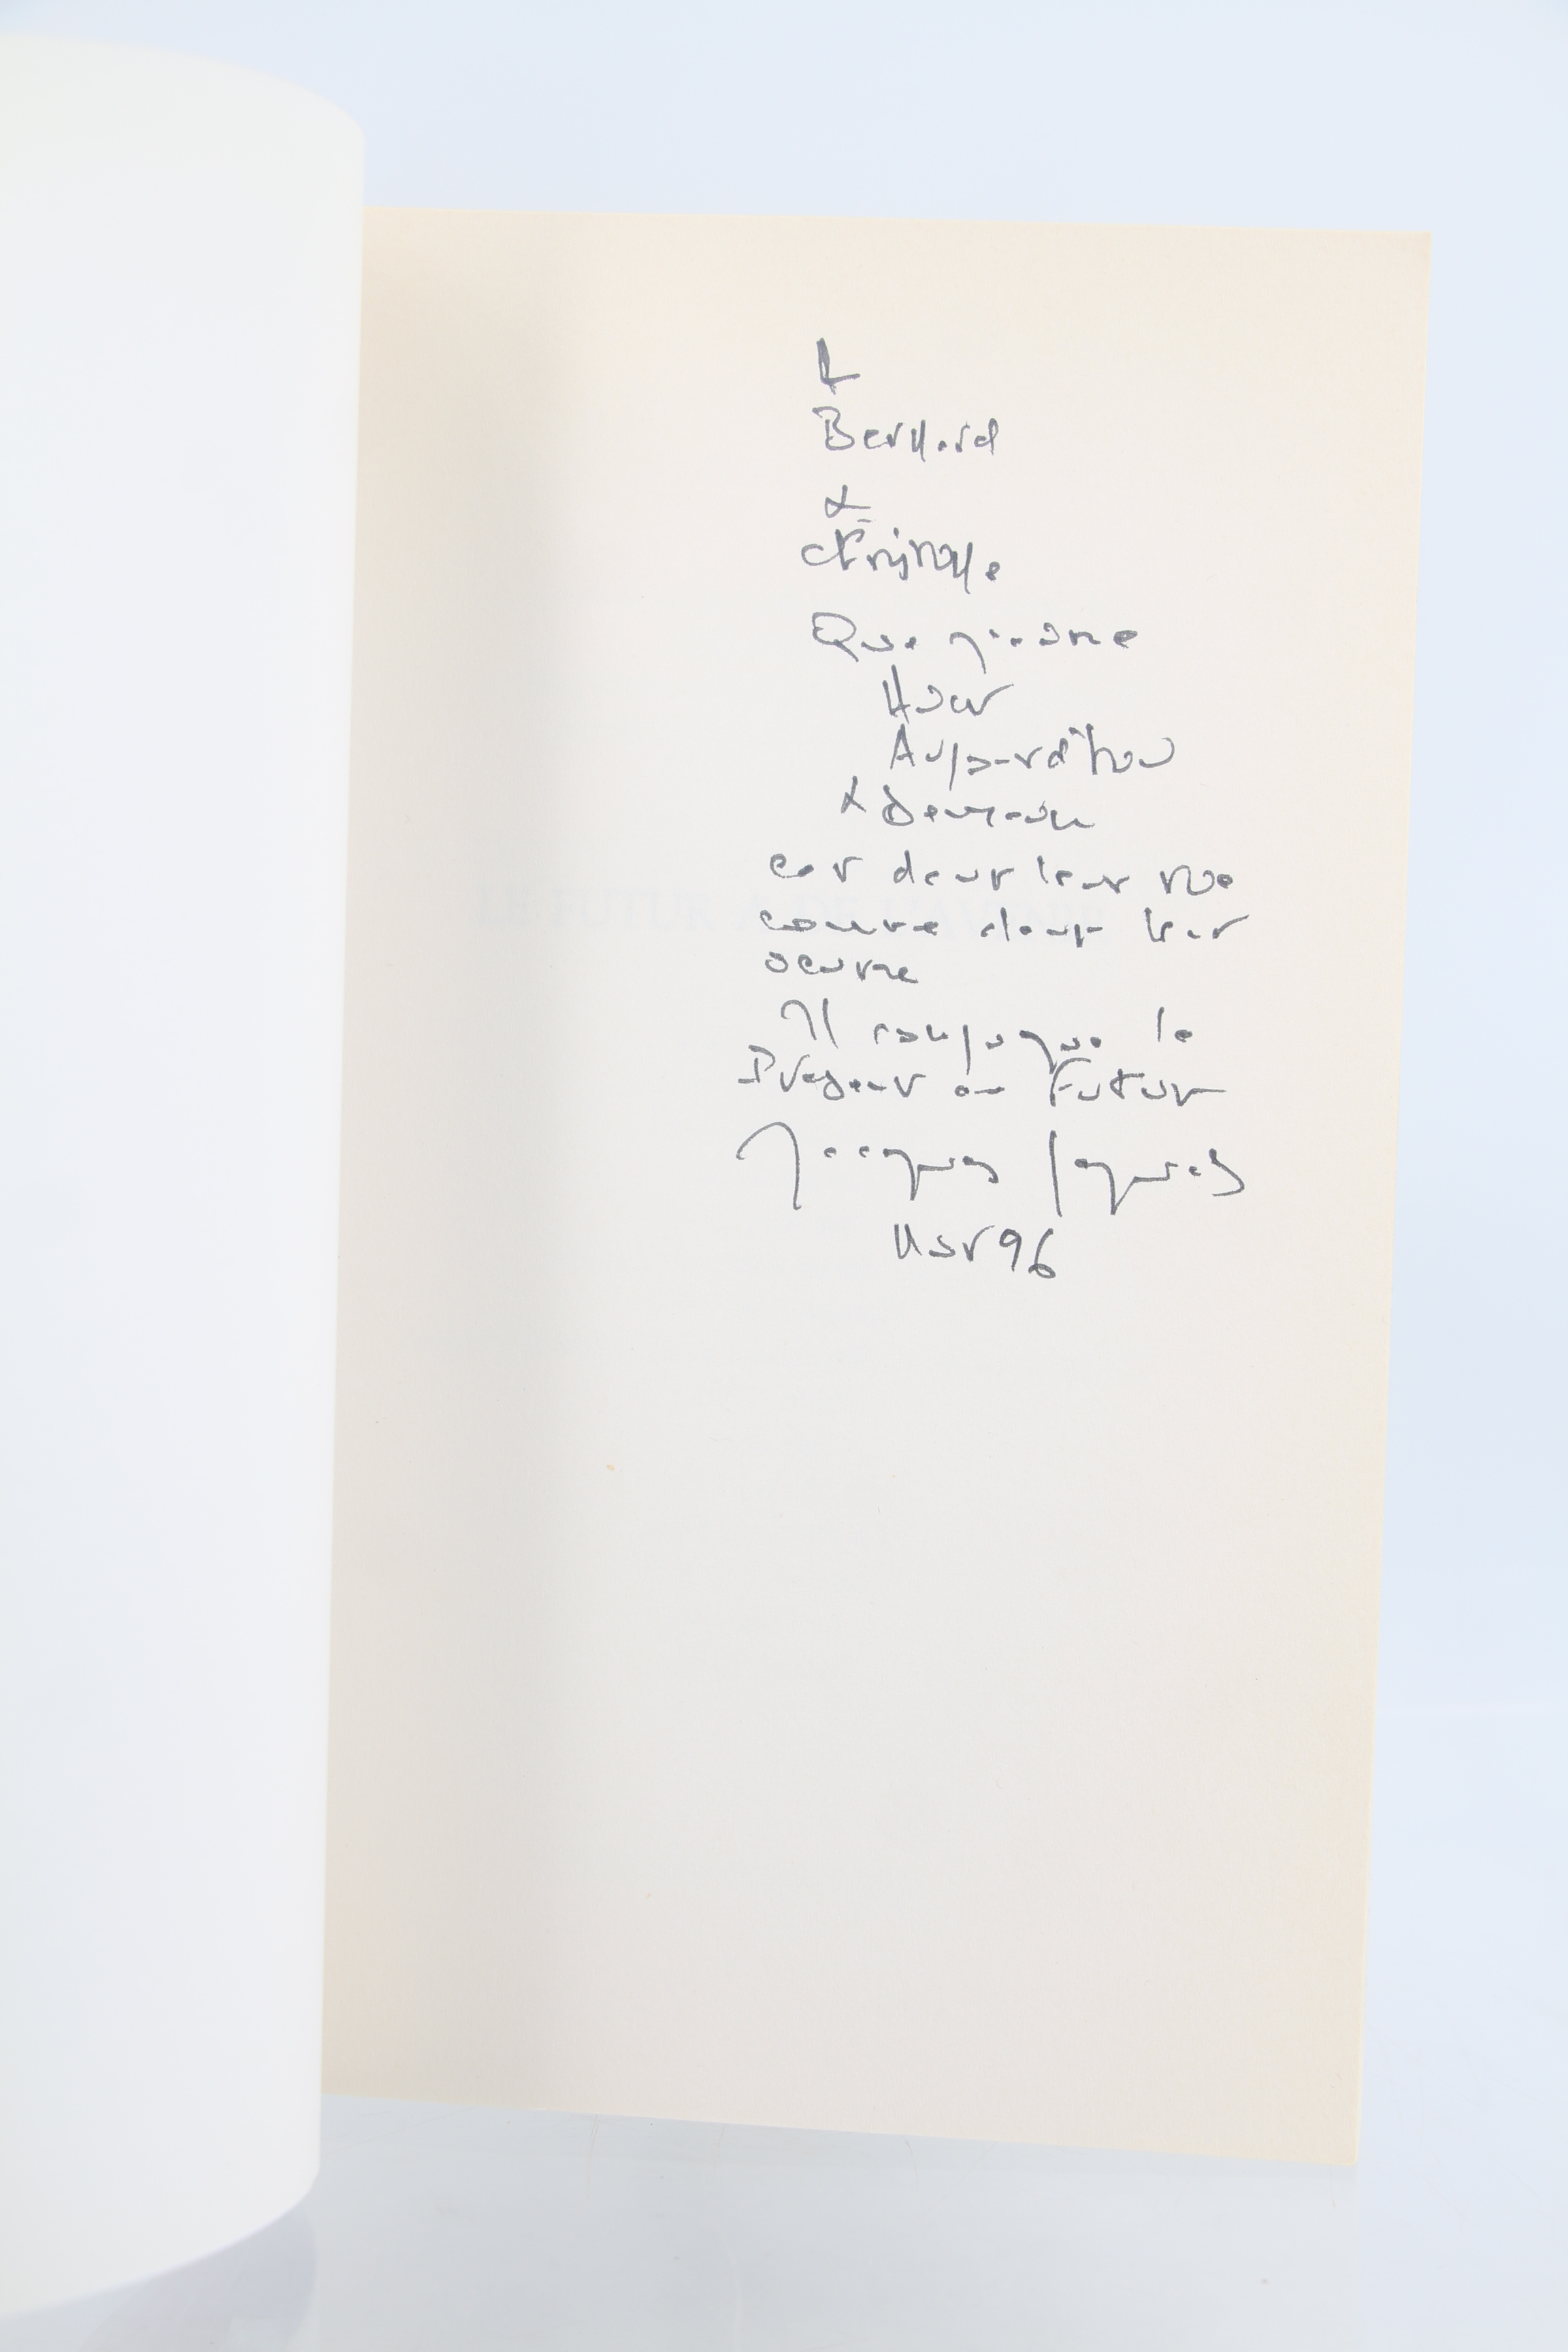 A
Bernard
&
Christine
Que j'aime
Hier
Aujourd'hui
& Demain
car dans leur vie
comme dans leur
oeuvre
Il conjugue le
Présent au Futur
Jacques
Nov 96
LE FUTUR A DE L'AVENIR